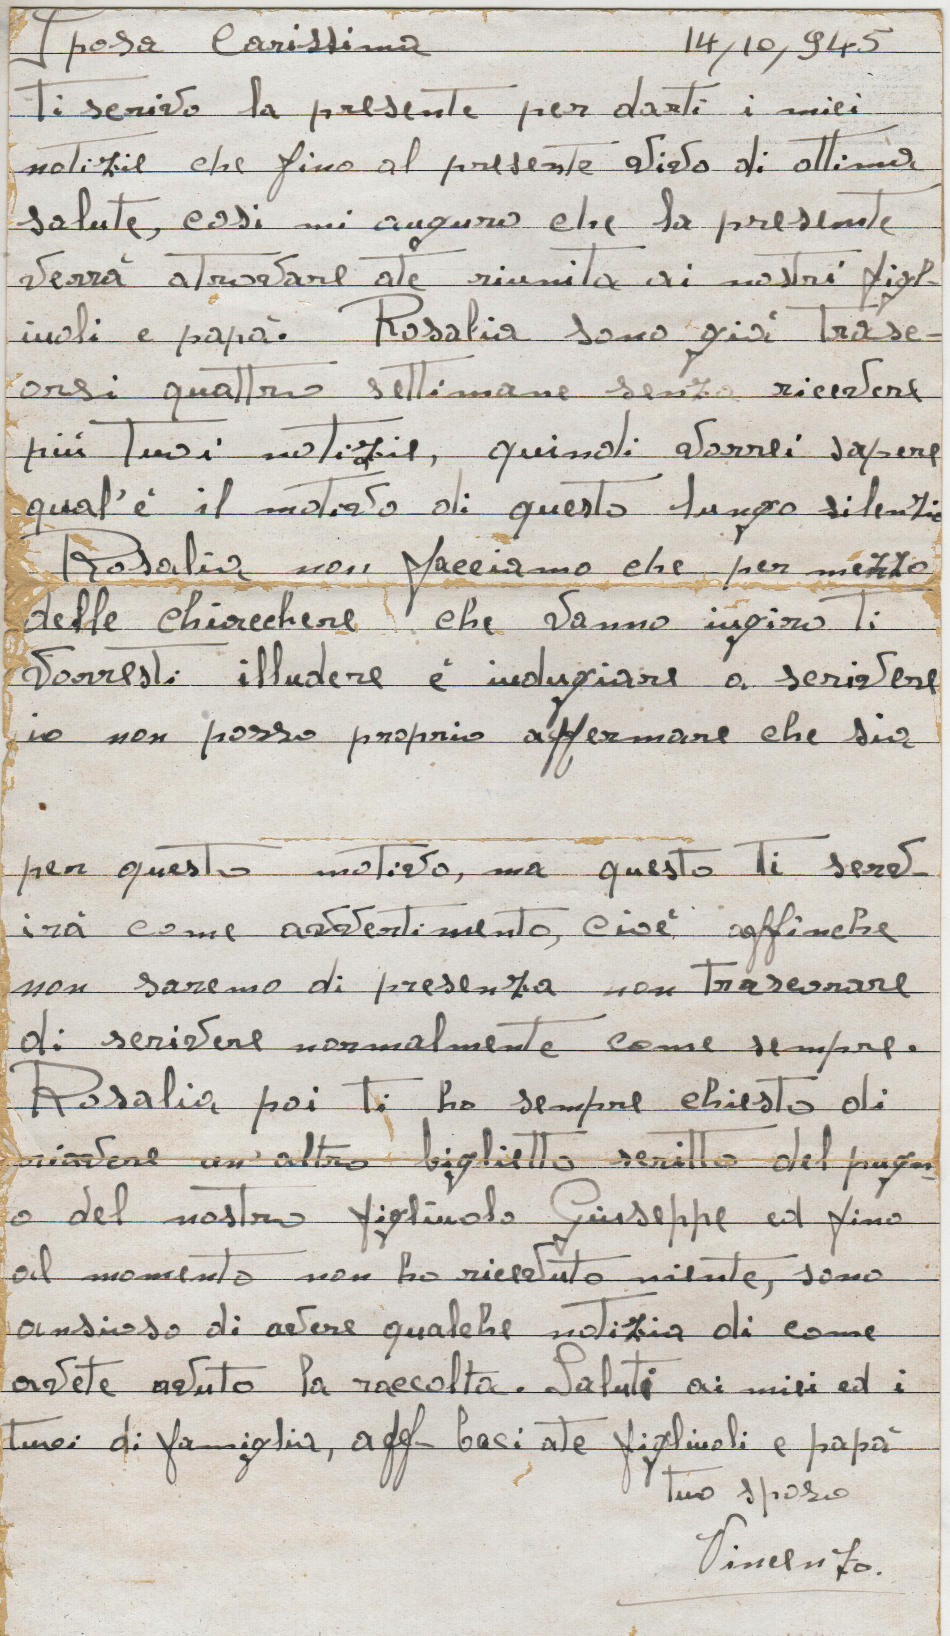 Sposa Carissima 14/10/945
Ti scrivo la presente per darti i miei
notizie che fino al presente vivo di ottima
salute, cosi mi auguro che la presente
verrà atrovare atè riunita ai nostri figl-
iuoli e papà. Rosalia sono già trasc-
orsi quattro settimane senza ricevere
più tuoi notizie, quindi vorrei sapere
qual'è il motivo di questo lungo silenzio
Rosalia non facciamo che per mezzo
delle chiecchere che vanno ingiro ti
vorresti illudere è indugiare a scrivere
io non posso proprio affermare che sia
per questo motivo, ma questo ti serv-
irà come avvertimento, cioè affinche
non saremo di presenza non trascorare
di scrivere normalmente come sempre.
Rosalia poi ti ho sempre chiesto di
riavere un'altro biglietto scritto del pugn-
o del nostro figliuolo Giuseppe ed fino
al momento non ho ricevuto niente, sono
ansioso di avere qualche notizia di come
avete avuto la raccolta. Saluti ai miei ed i
tuoi di famiglia, aff- baci ate figliuoli e papà
tuo sposo
Vincenzo.